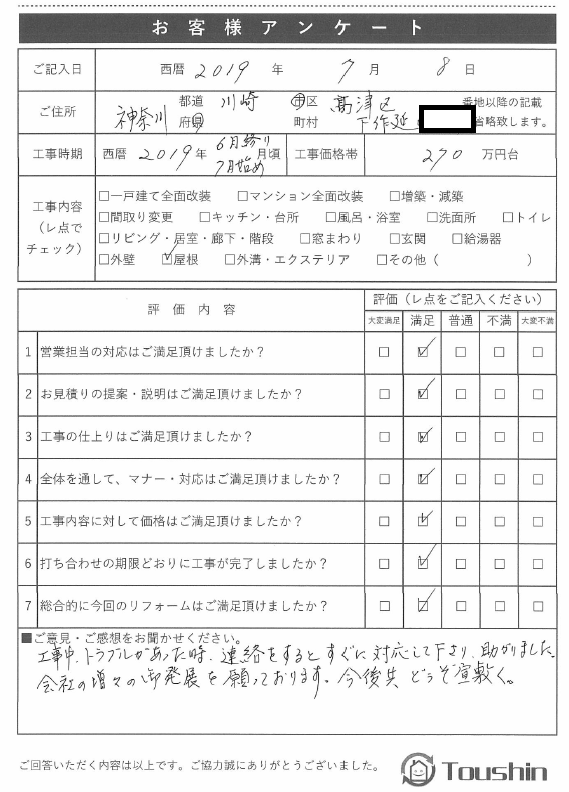 お客様アンケート
ご記入日 西暦 2019 年 7 月 8 日
ご住所 神奈川 都道府県 川崎 市区町村 高津区 下作延 番地以降の記載省略致します。
工事時期 西暦 2019年 6月終り 7月始め 月頃 工事価格帯 270 万円台
工事内容（レ点でチェック）
□一戸建て全面改装 □マンション全面改装 □増築・減築
□間取り変更 □キッチン・台所 □風呂・浴室 □洗面所 □トイレ
□リビング・居室・廊下・階段 □窓まわり □玄関 □給湯器
□外壁 ☑屋根 □外溝・エクステリア □その他（ ）
評価内容 評価（レ点をご記入ください）
大変満足 満足 普通 不満 大変不満
1 営業担当の対応はご満足頂けましたか？ □ ☑ □ □ □
2 お見積りの提案・説明はご満足頂けましたか？ □ ☑ □ □ □
3 工事の仕上りはご満足頂けましたか？ □ ☑ □ □ □
4 全体を通して、マナー・対応はご満足頂けましたか？ □ ☑ □ □ □
5 工事内容に対して価格はご満足頂けましたか？ □ ☑ □ □ □
6 打ち合わせの期限どおりに工事が完了しましたか？ □ ☑ □ □ □
7 総合的に今回のリフォームはご満足頂けましたか？ □ ☑ □ □ □
■ご意見・ご感想をお聞かせください。
工事中、トラブルがあった時、連絡をするとすぐに対応して下さり、助かりました。
会社の増々の御発展を願っております。今後共どうぞ宜敷く。
ご回答いただく内容は以上です。ご協力誠にありがとうございました。
Toushin